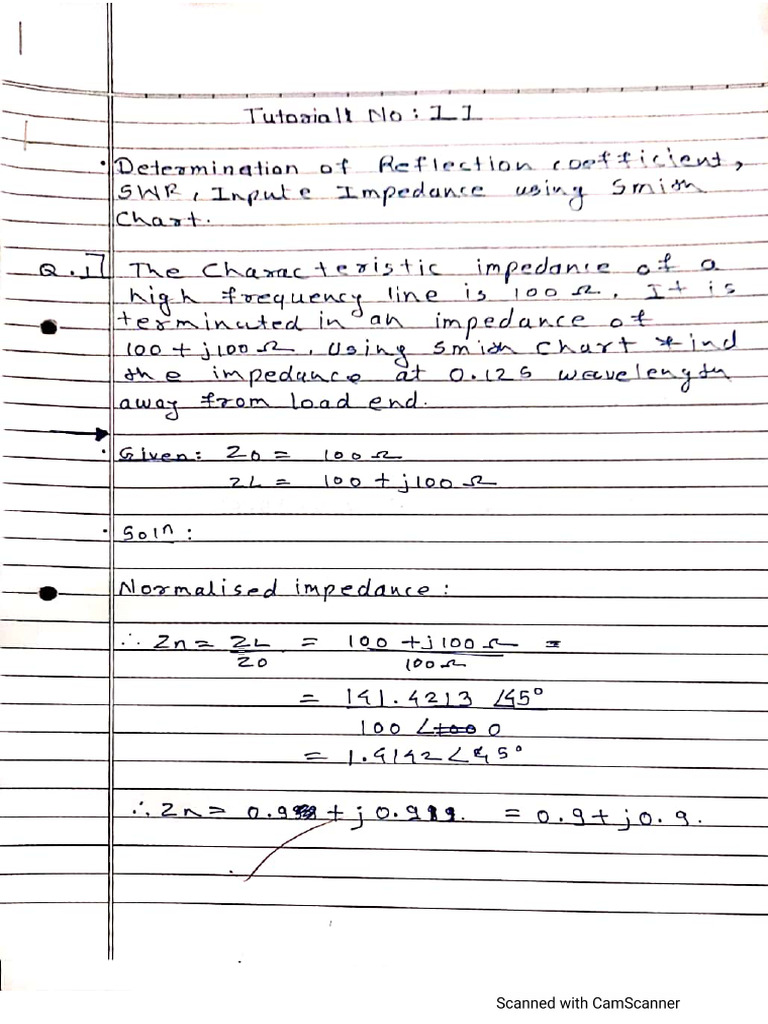 Tutorial No : 11
• Determination of Reflection coefficient,
SWR, Inpute Impedance using Smith
Chart.
Q.1] The Characteristic impedance of a
high frequency line is 100 Ω. It is
terminated in an impedance of
100 + j100 Ω, Using smith chart find
the impedance at 0.125 wavelength
away from load end.
→
• Given: Z0 = 100 Ω
ZL = 100 + j100 Ω
• Soln :
Normalised impedance :
∴ Zn = ZL/Z0 = 100 + j100 Ω / 100 Ω =
= 141.4213 ∠45° / 100 ∠0
= 1.4142 ∠45°
∴ Zn = 0.999 + j 0.999. = 0.9 + j0.9.
Scanned with CamScanner